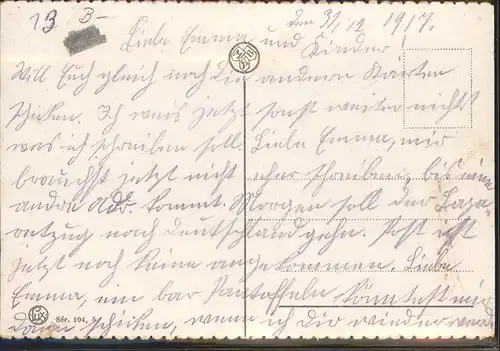 13 B-
den 31.12.1917.
Liebe Emma, und Kinder!
Will Euch gleich noch die andern Karten
schicken. Ich weis jetzt sonst weiter nichts
was ich schreiben soll. Liebe Emma, mir
brauchst jetzt nicht eher schreiben, bis eine
andre Adr. kommt. Morgen soll der Laza-
rettzug nach Deutschland gehn. Post ist
jetzt noch keine angekommen. Liebe
Emma, ein bar Pantoffeln könntest mir
dann schicken, wenn ich dir wieder
Sér. 104, 5